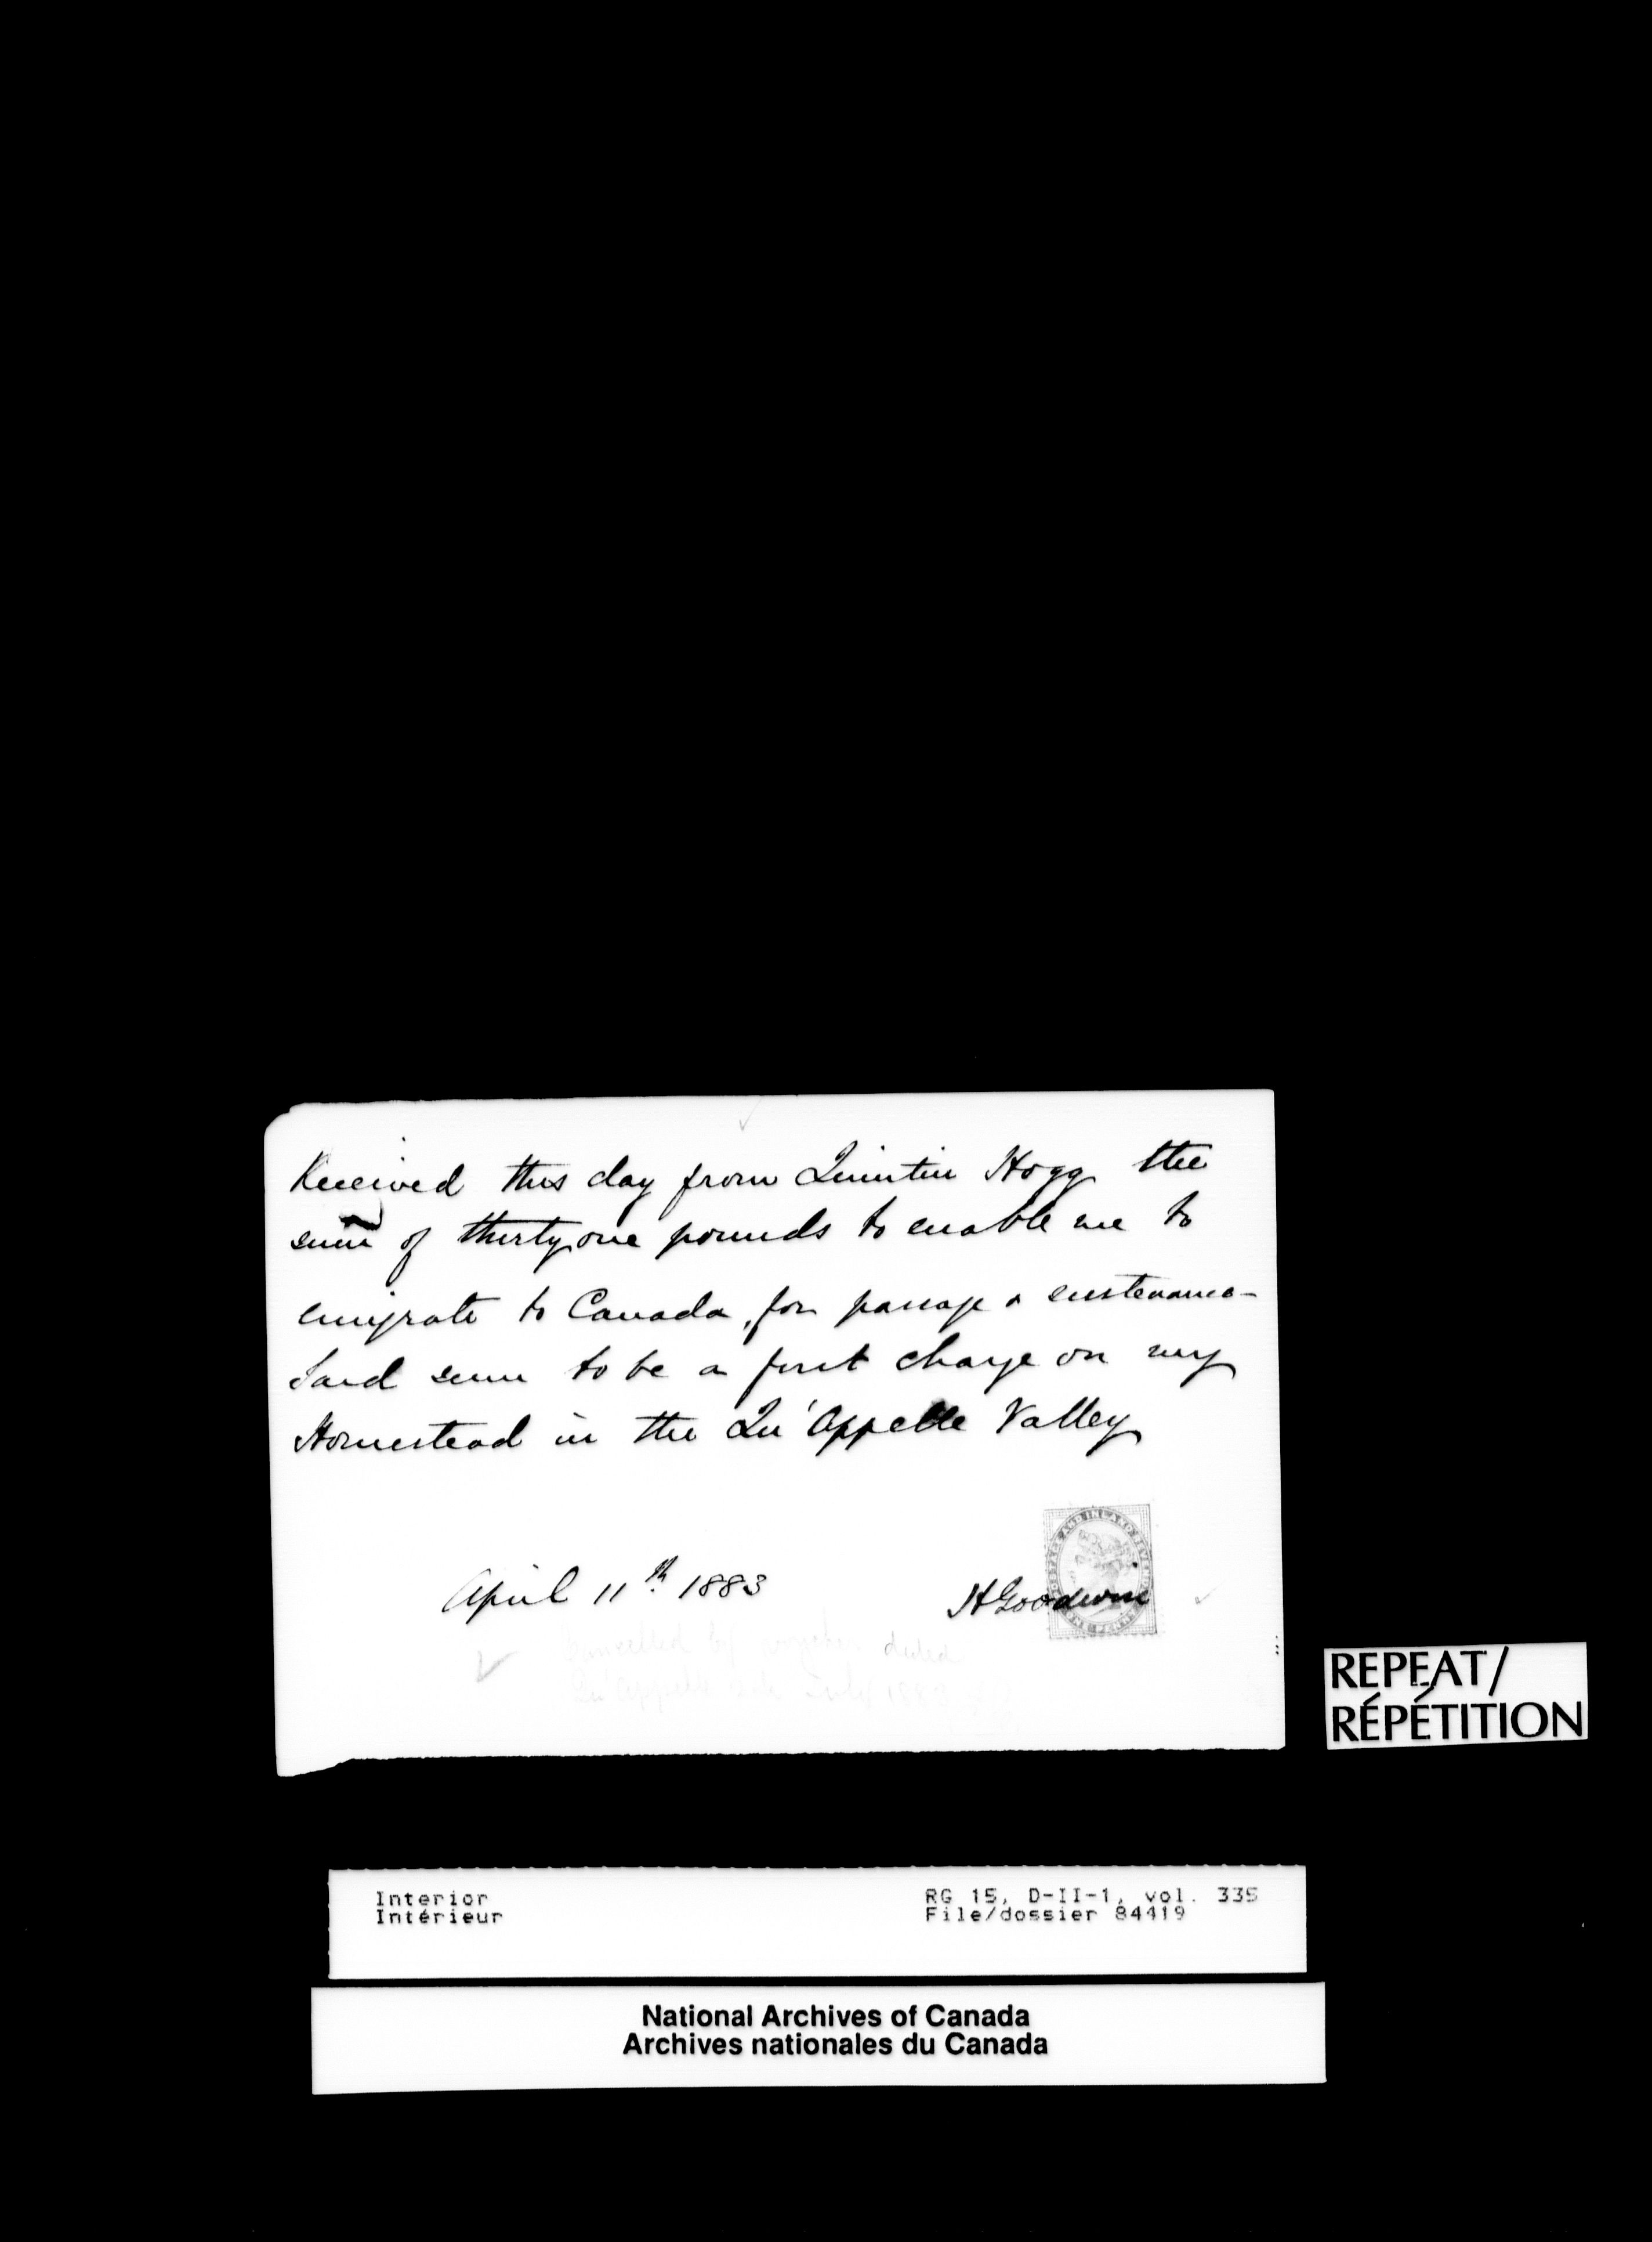 Received this day from Quintin Hogg the
sum of thirty one pounds to enable me to
emigrate to Canada, for passage & sustenance -
Said sum to be a first charge on my
Homestead in the Qu'Appelle Valley
POSTAGE AND INLAND REVENUE
ONE PENNY
April 11th 1883
H Goodwin
Cancelled by voucher dated
Qu'Appelle July 1883
REPEAT/
RÉPÉTITION
Interior
Intérieur
RG 15, D-II-1, vol. 335
File/dossier 84419
National Archives of Canada
Archives nationales du Canada